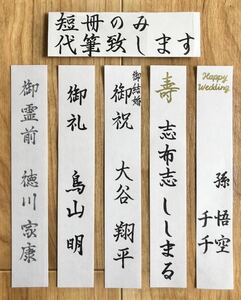 短冊のみ
代筆致します
Happy
Wedding
孫悟空
千千
寿
志布志ししまる
御結婚
御祝
大谷翔平
御礼
鳥山明
御霊前
徳川家康